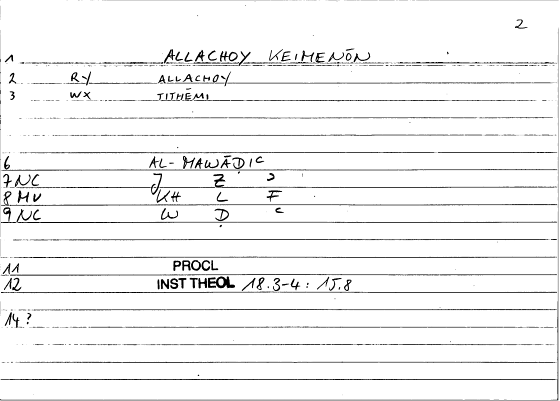 2
1 ALLACHOY KEIMENŌN
2 RY ALLACHOY
3 WX TITHĒMI
6 AL-MAWĀḌIʿ
7 NC J Ẓ ʾ
8 MV KH L F
9 NC W Ḍ ʿ
11 PROCL
12 INST THEOL 18.3-4 : 15.8
14 ?